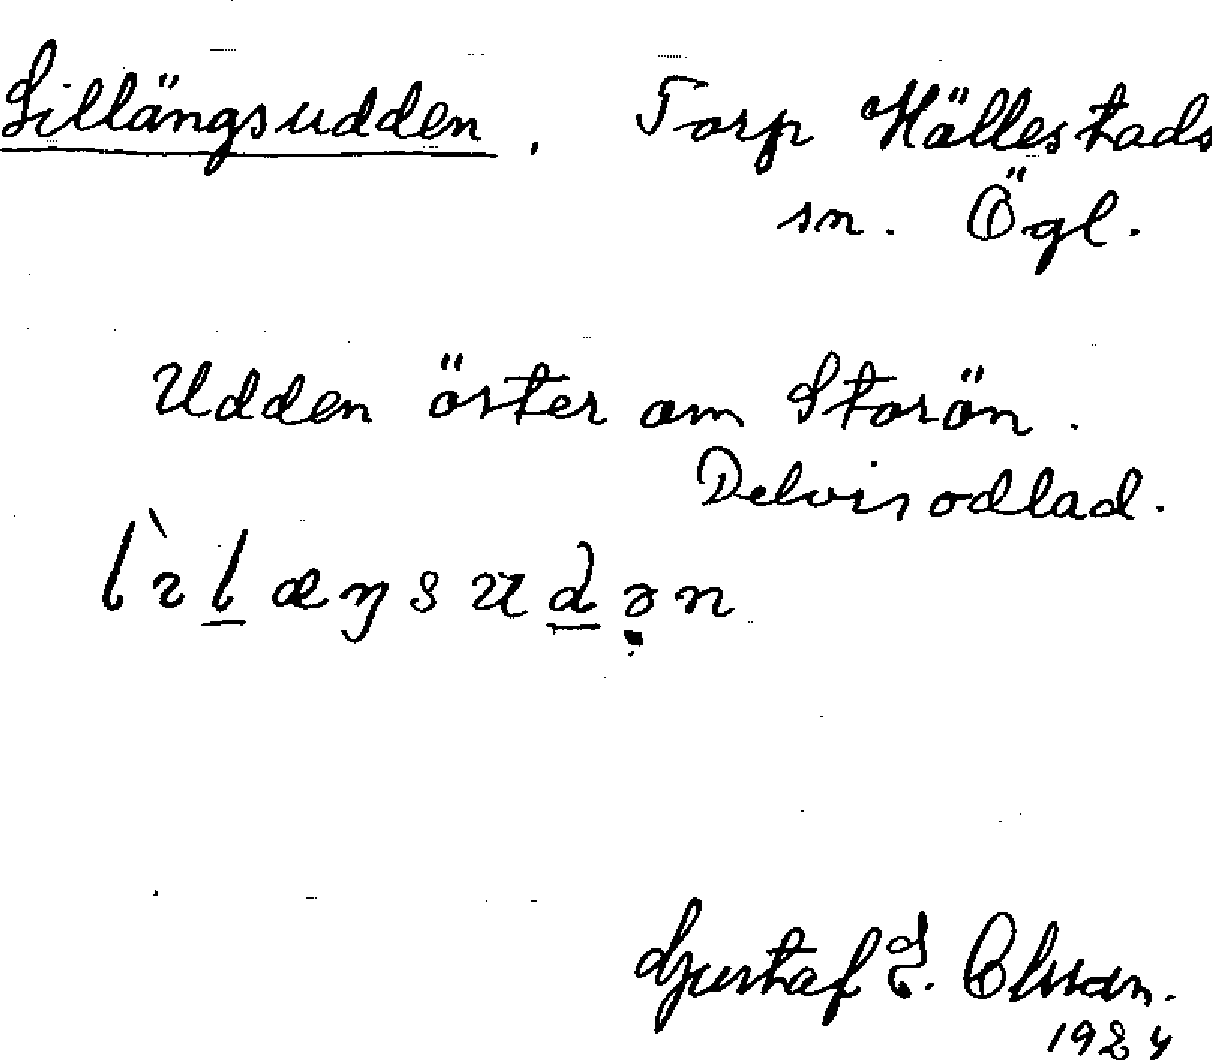 Lillängsudden. Torp Hällestads
sn. Ögl.
Udden öster om Storön.
Delvis odlad.
lìl̲æŋsud̲ən
Gustaf E. Olsson.
1924